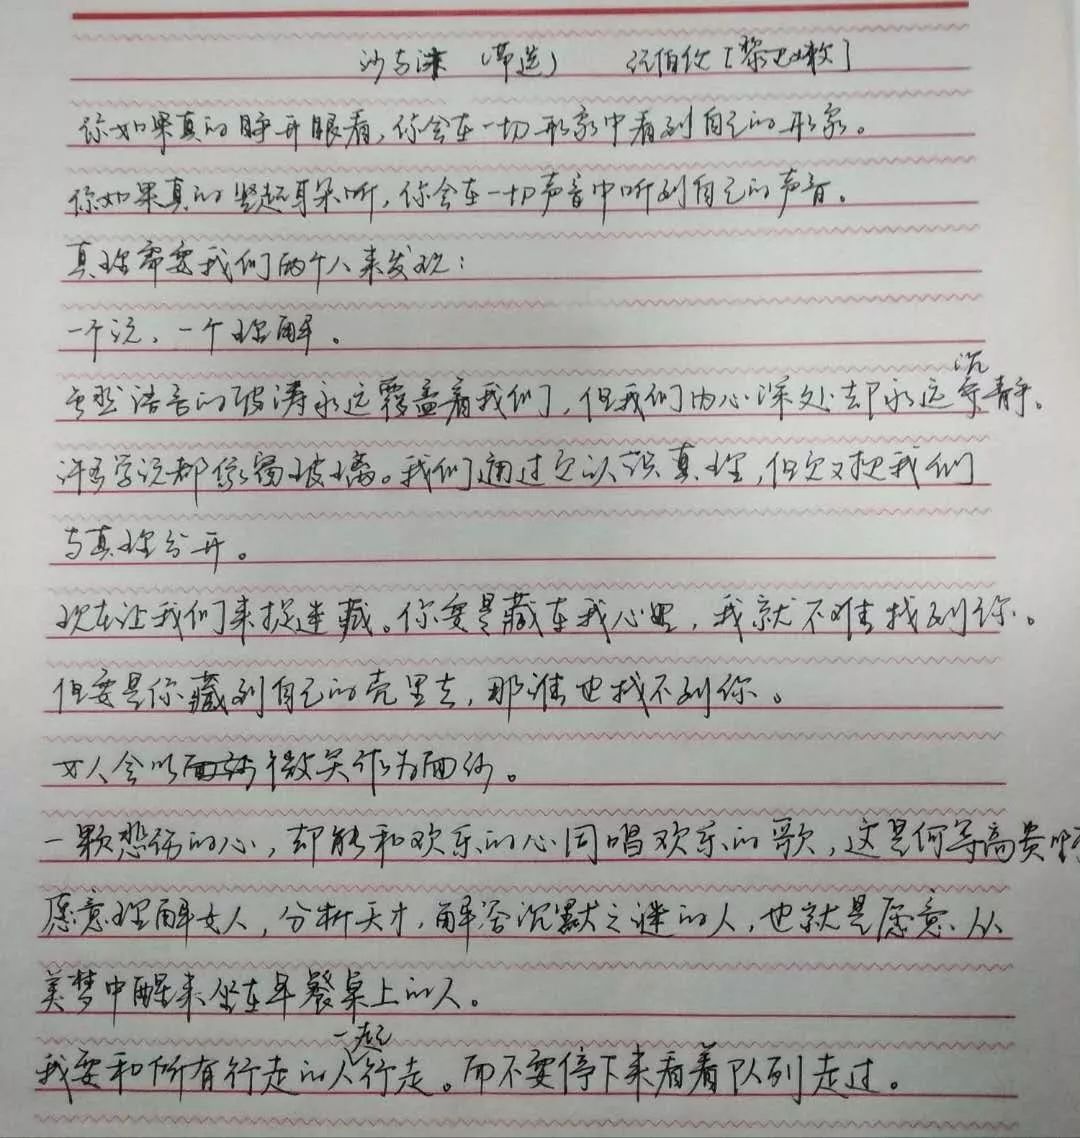 沙与沫 (节选) 纪伯伦 [黎巴嫩]
你如果真的睁开眼看,你会在一切形象中看到自己的形象。
你如果真的竖起耳朵听,你会在一切声音中听到自己的声音。
真理需要我们两个人来发现:
一个说、一个理解。
虽然语言的波涛永远覆盖着我们,但我们内心深处却永远沉静。
许多学说都像窗玻璃。我们通过它认识真理,但它又把我们
与真理分开。
现在让我们来捉迷藏。你要是藏在我心里,我就不难找到你。
但要是你藏到自己的壳里去,那谁也找不到你。
女人会以微笑作为面纱。
一颗悲伤的心,却能和欢乐的心同唱欢乐的歌,这是何等高贵啊
愿意理解女人,分析天才,解答沉默之谜的人,也就是愿意从
美梦中醒来坐在早餐桌上的人。
我要和所有行走的人一起行走。而不要停下来看着队列走过。